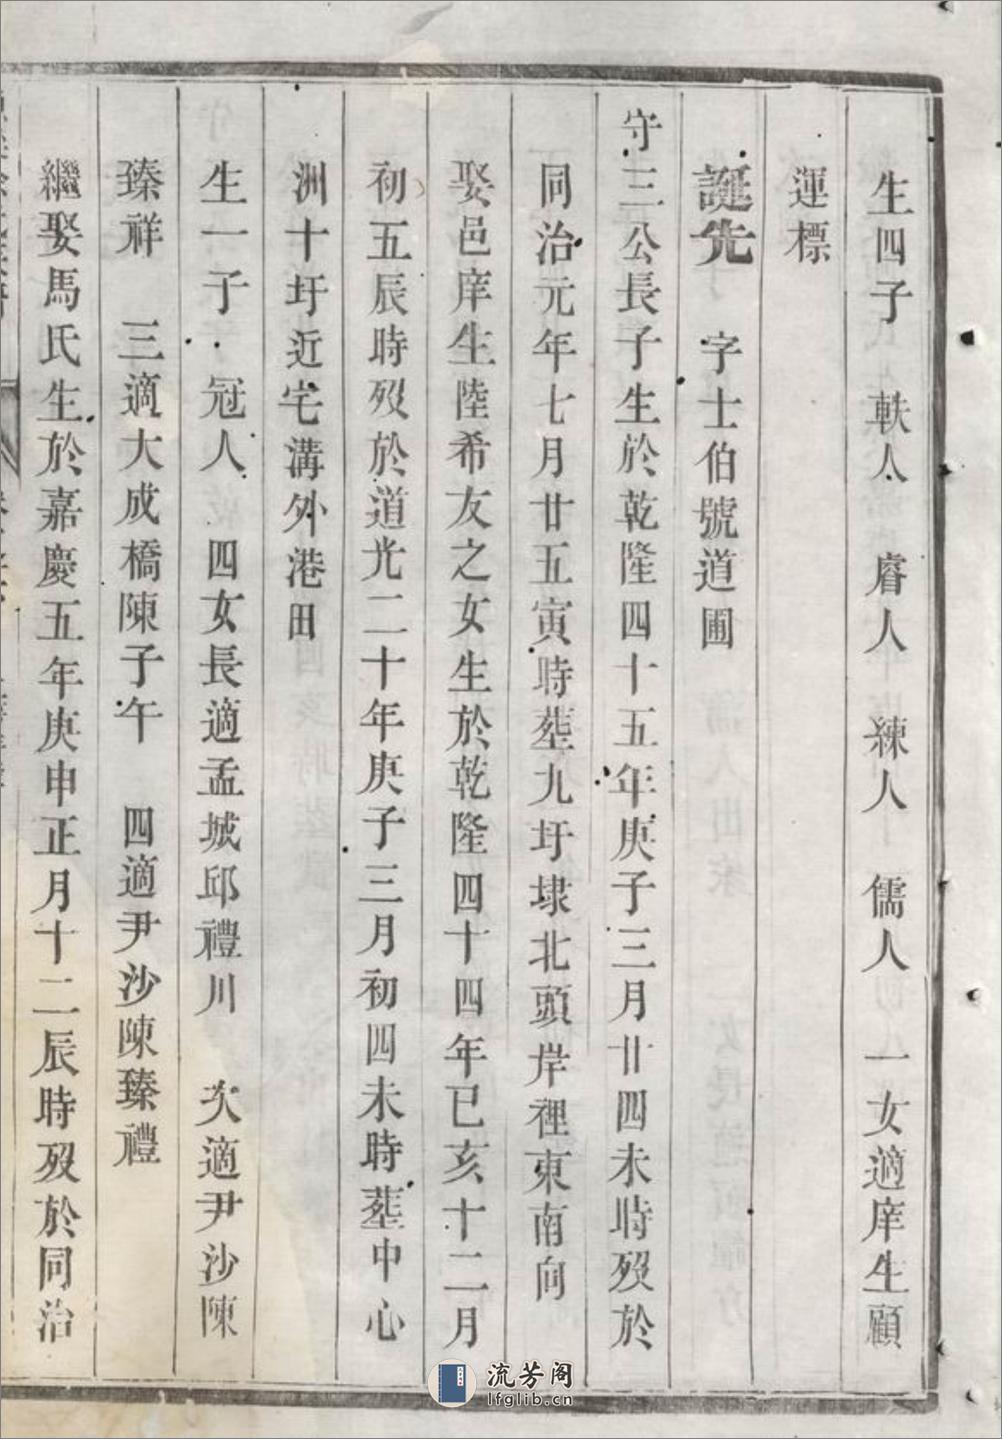 生四子　軼人　睿人　練人　儒人　一女適庠生顧
運標
誕先　字士伯號道圃
守三公長子生於乾隆四十五年庚子三月廿四未時歿於
同治元年七月廿五寅時葬九圩埭北頭岸裡東南向
娶邑庠生陸希友之女生於乾隆四十四年已亥十二月
初五辰時歿於道光二十年庚子三月初四未時葬中心
洲十圩近宅溝外港田
生一子　冠人　四女長適孟城邱禮川　次適尹沙陳
臻祥　三適大成橋陳子午　四適尹沙陳臻禮
繼娶馬氏生於嘉慶五年庚申正月十二辰時歿於同治
流芳阁
lfglib.cn